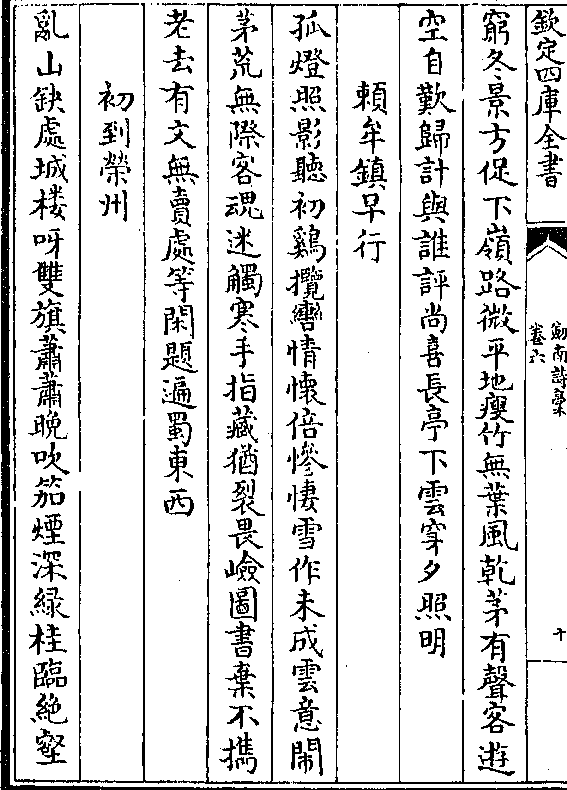 欽定四庫全書
劔南詩稾
卷六
十
窮冬景方促下嶺路微平地瘦竹無葉風乾茅有聲客遊
空自歎歸計與誰評尚喜長亭下雲穿夕照明
頼牟鎮早行
孤燈照影聽初鷄攬轡情懷倍慘悽雪作未成雲意閙
茅荒無際客魂迷觸寒手指藏猶裂畏嶮圖書棄不擕
老去有文無賣處等閑題遍蜀東西
初到榮州
亂山缺處城楼呀雙旗蕭蕭晚吹笳煙深綠桂臨絶壑